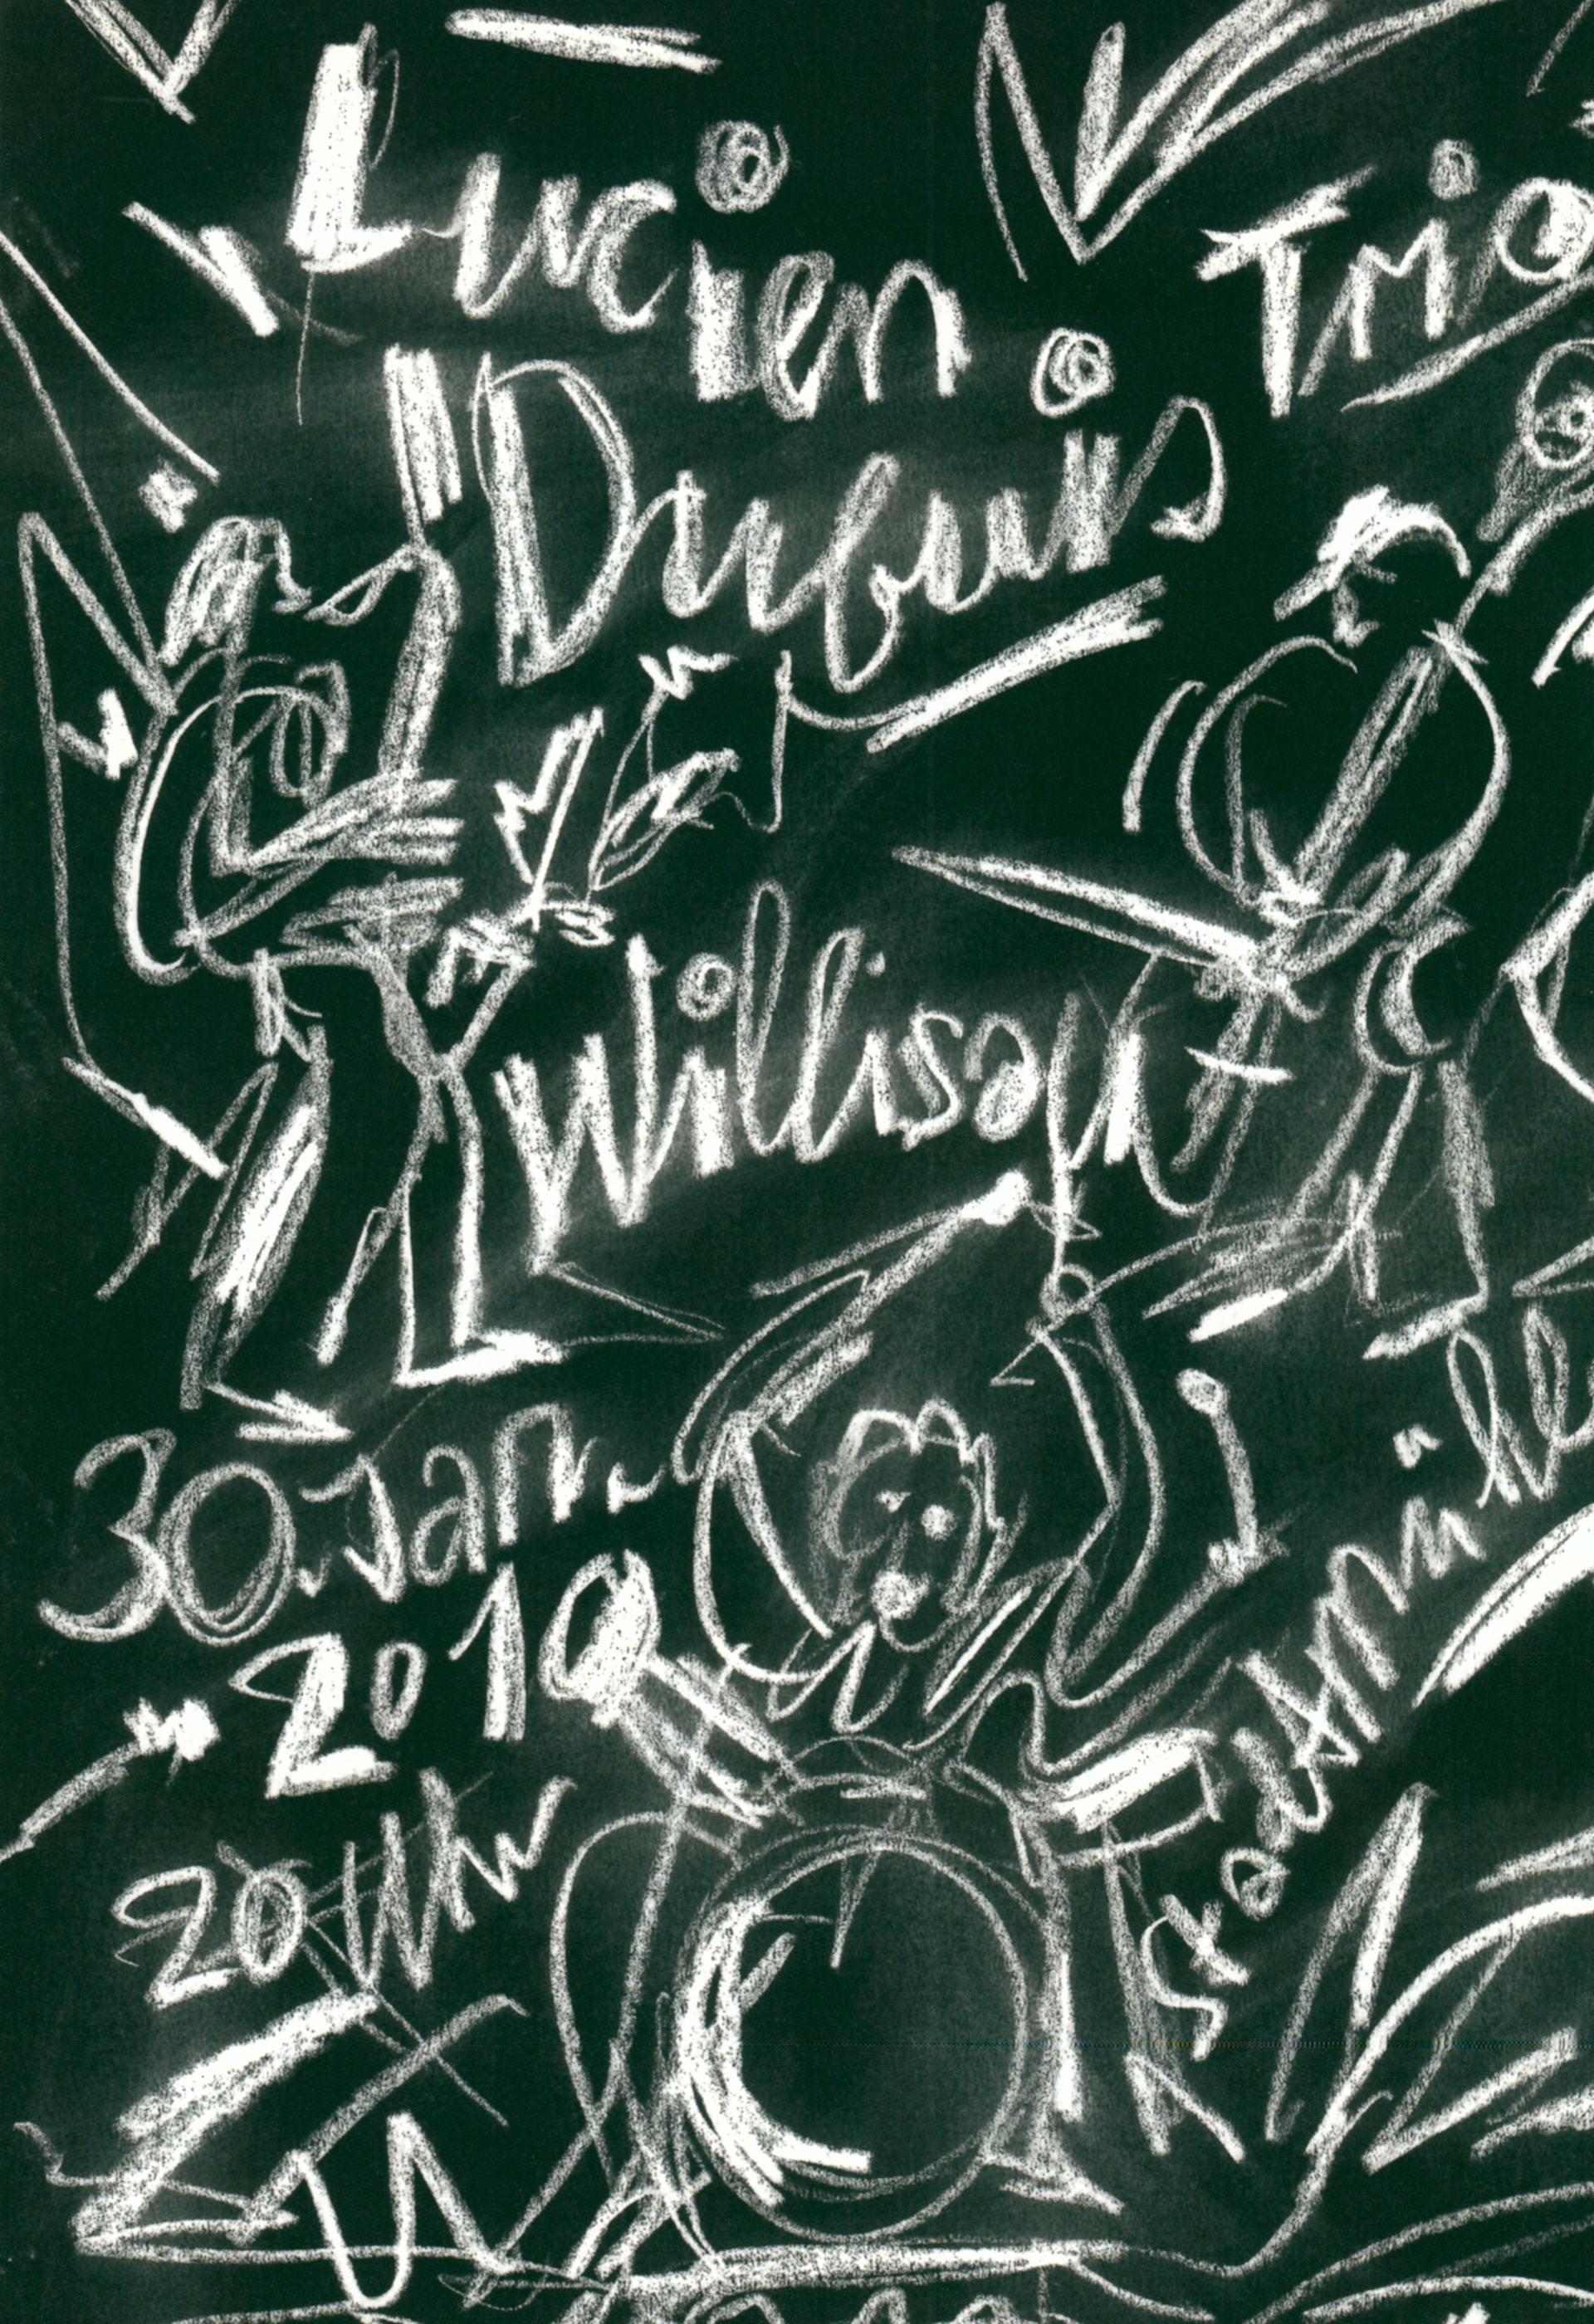 Lucien
Trio
Dubuis
Willisau
30. Jan.
2010
20 Uhr
Stadtmühle